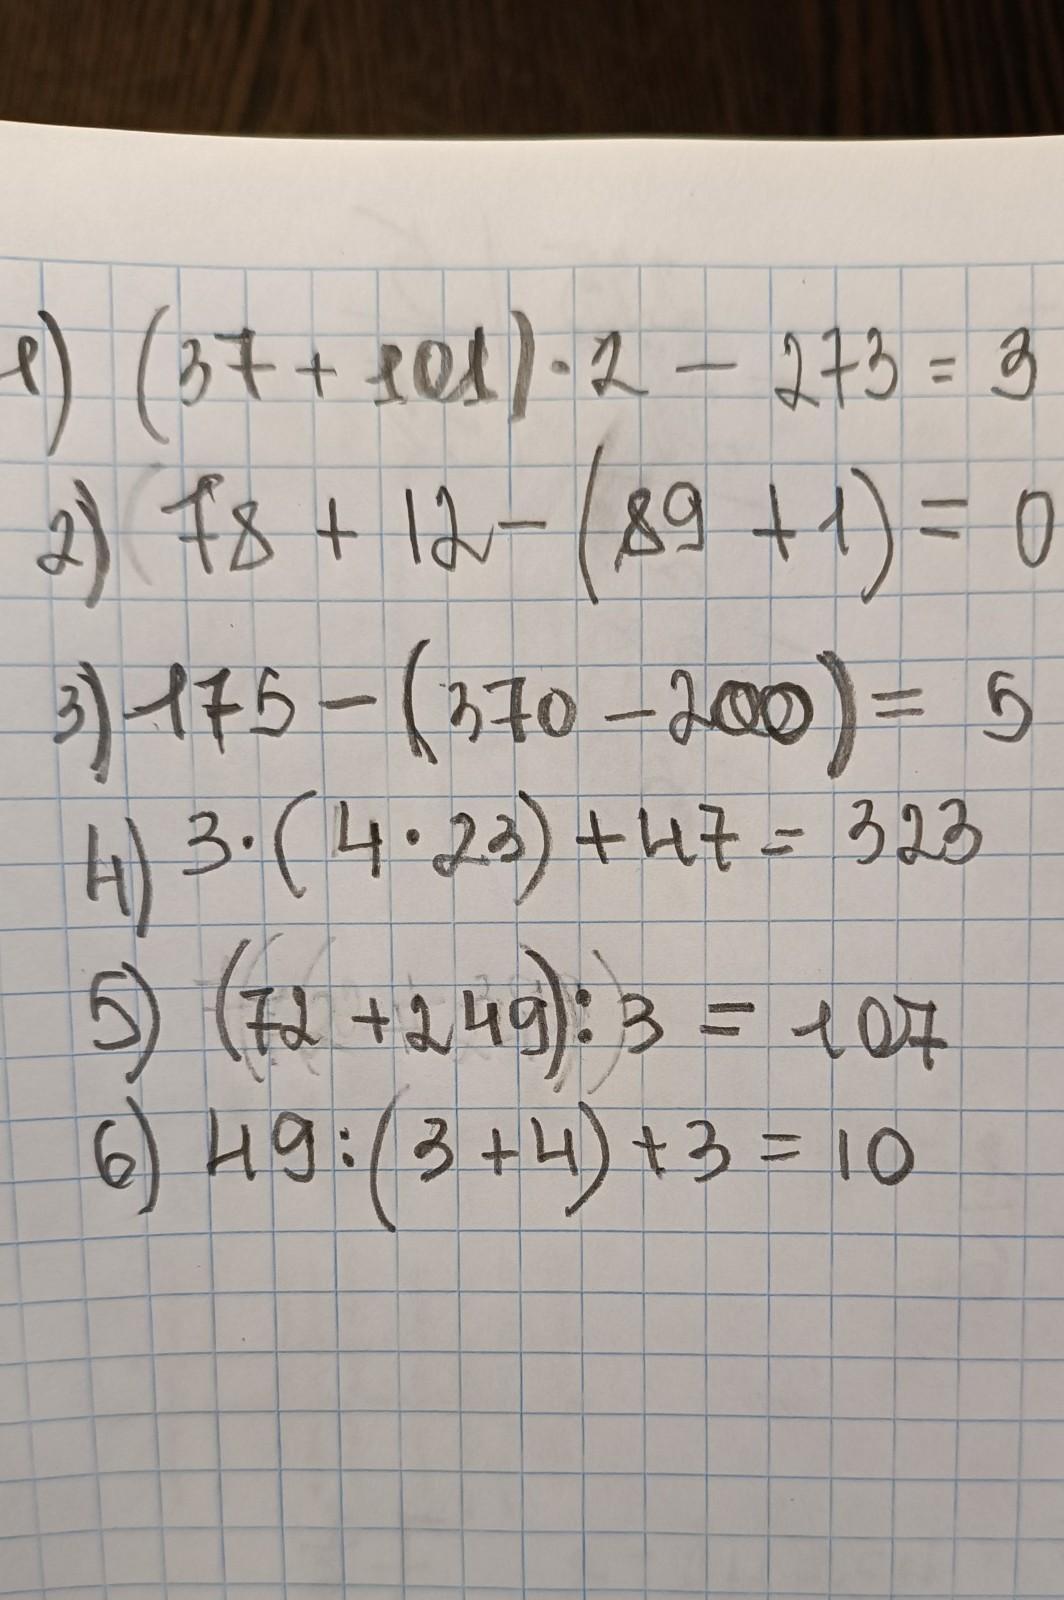 1) (37 + 101) · 2 - 273 = 3
2) 78 + 12 - (89 + 1) = 0
3) 175 - (370 - 200) = 5
4) 3 · (4 · 23) + 47 = 323
5) (72 + 249) : 3 = 107
6) 49 : (3 + 4) + 3 = 10